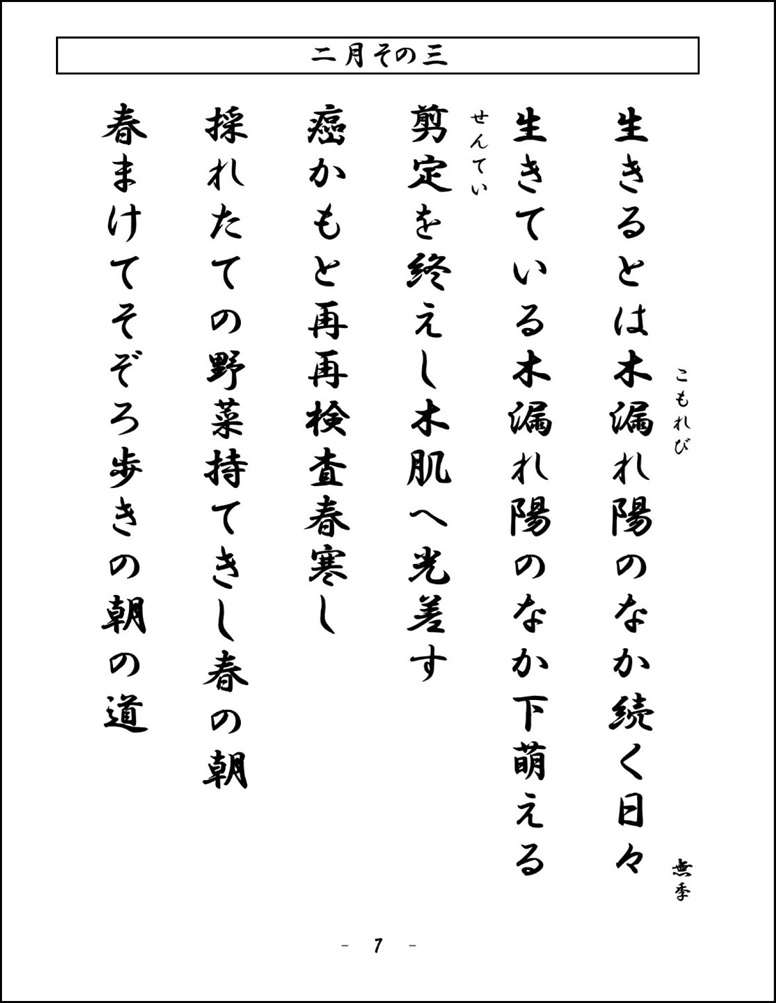 二月その三
こもれび
無季
生きるとは木漏れ陽のなか続く日々
生きている木漏れ陽のなか下萌える
せんてい
剪定を終えし木肌へ光差す
癌かもと再再検査春寒し
採れたての野菜持てきし春の朝
春まけてそぞろ歩きの朝の道
- 7 -